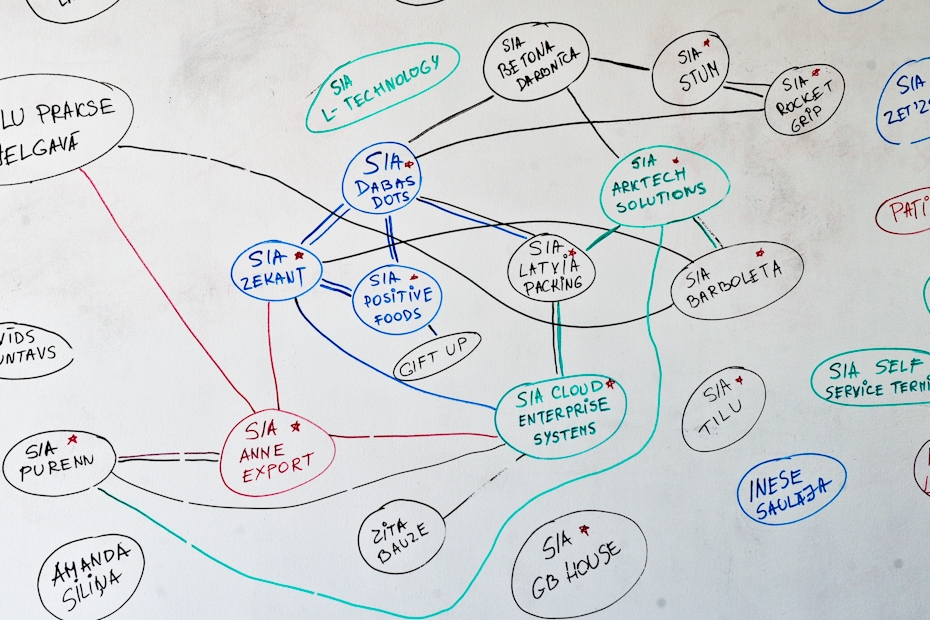 SIA
BETONA
DARBNICA
SIA
STUM
SIA
L-TECHNOLOGY
SIA
ROCKET
GRIP
SIA
LU PRAKSE
JELGAVĀ
SIA
DABAS
DOTS
SIA
ARKTECH
SOLUTIONS
PATI
SIA
ZEKANT
SIA
POSITIVE
FOODS
SIA
LATVIA
PACKING
SIA
BARBOLETA
GIFT UP
SIA SELF
SERVICE TERMI
SIA CLOUD
ENTERPRISE
SYSTEMS
SIA
TILU
SIA
ANNE
EXPORT
SIA
PURENN
INESE
SAULĀJA
ZITA
BAUZE
SIA
GB HOUSE
AMANDA
SILIŅA